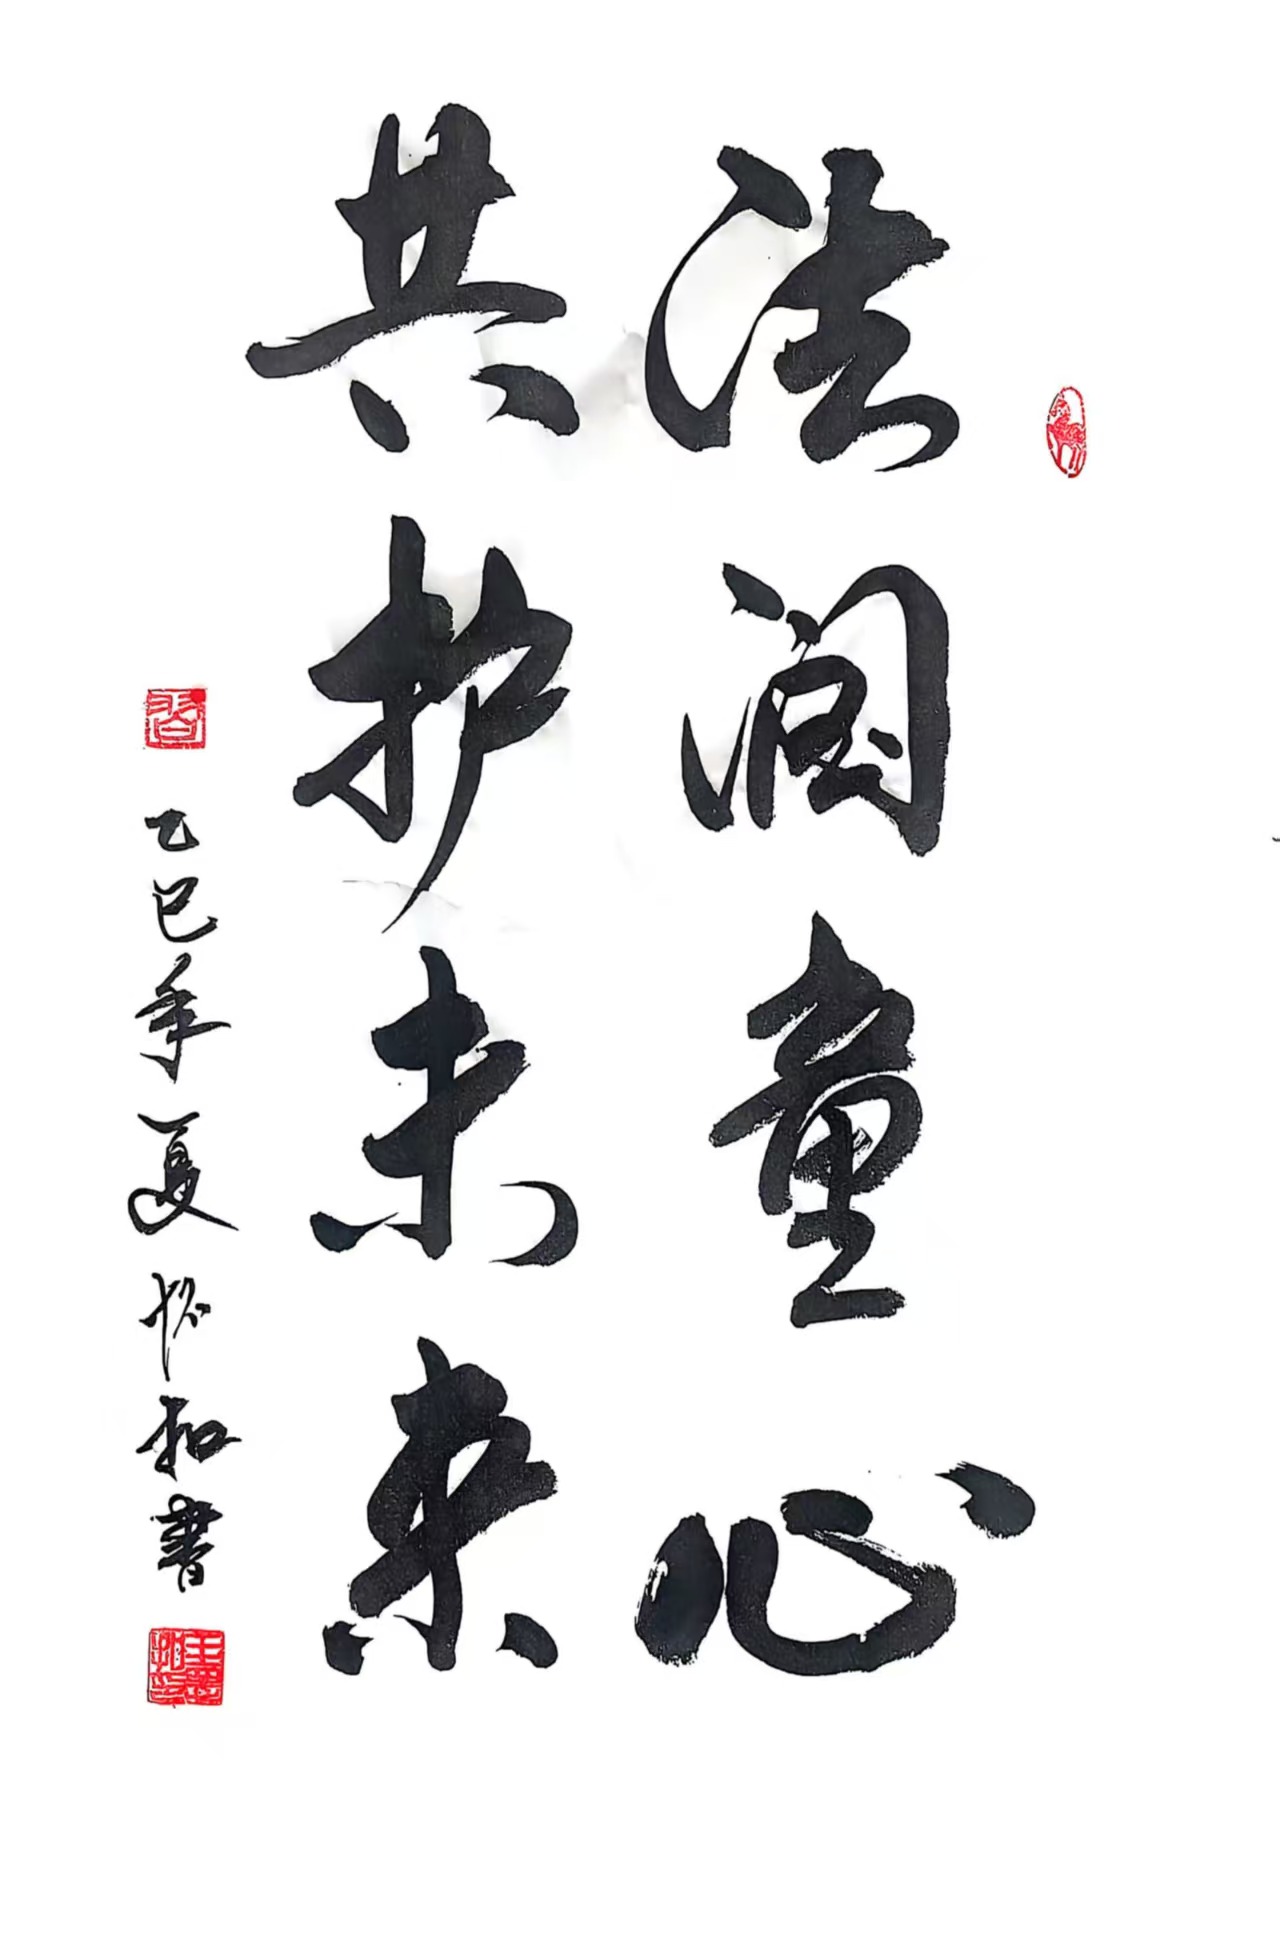 法润童心
共护未来
乙巳年夏 怀和书